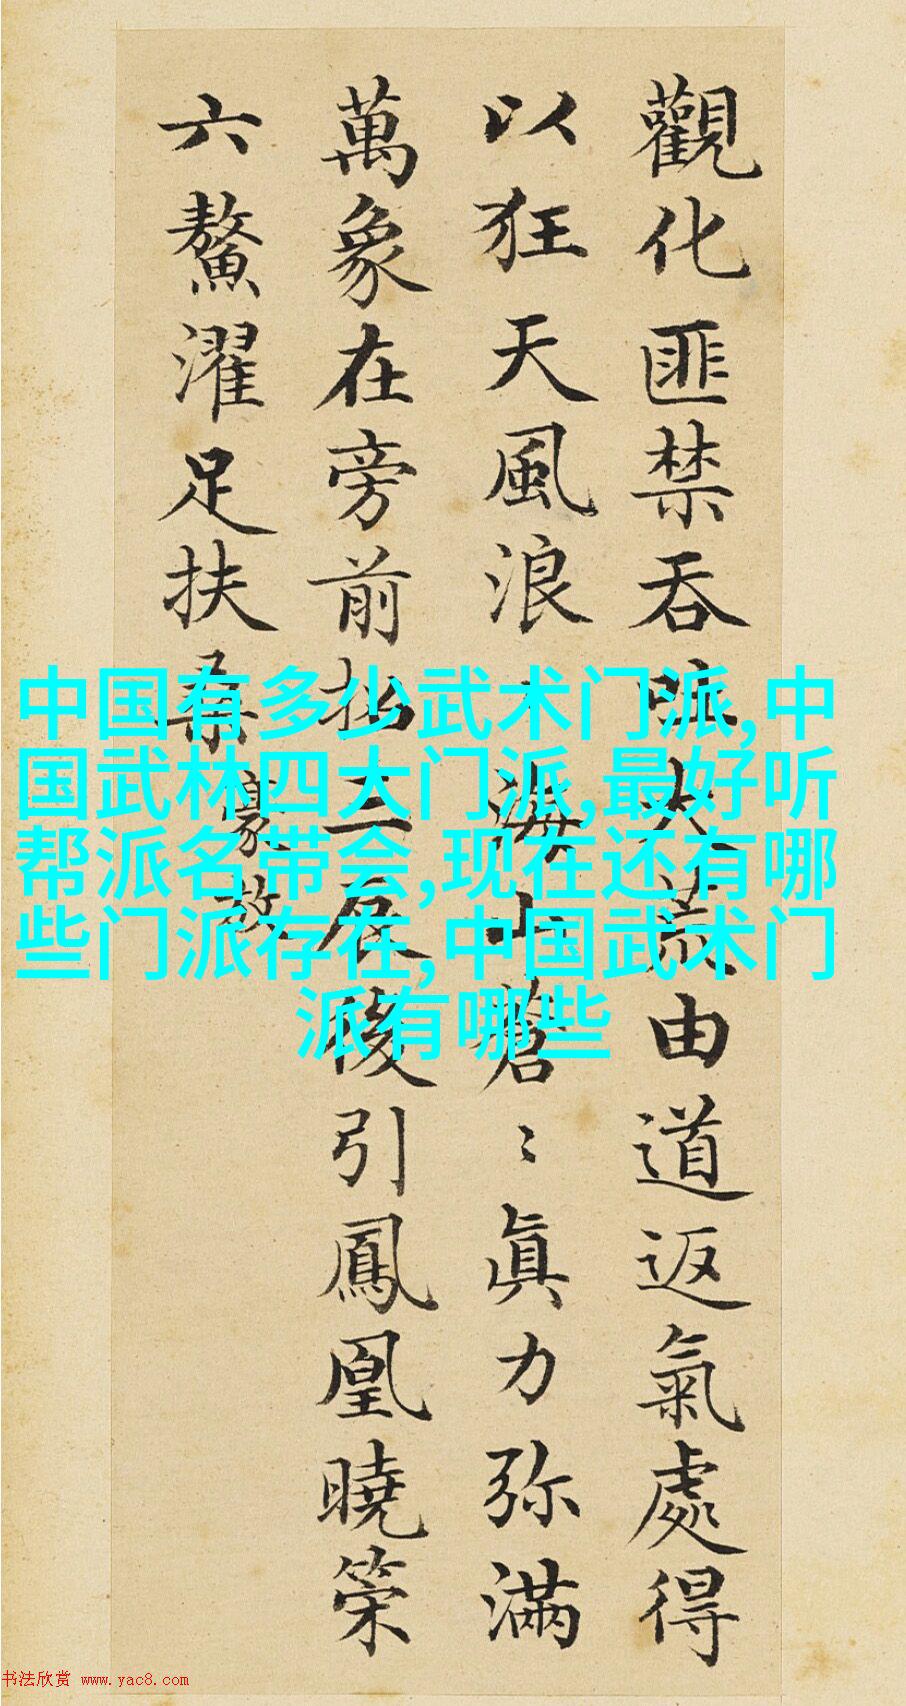 觀化匪禁吞吐大荒由道返氣處得
以狂天風浪〻海山蒼〻眞力弥滿
萬象在旁前招三辰後引鳳凰曉策
六鰲濯足扶桑
豪放
中国有多少武术门派,中
国武林四大门派,最好听
帮派名带会,现在还有哪
些门派存在,中国武术门
派有哪些
书法欣赏 www.yac8.com